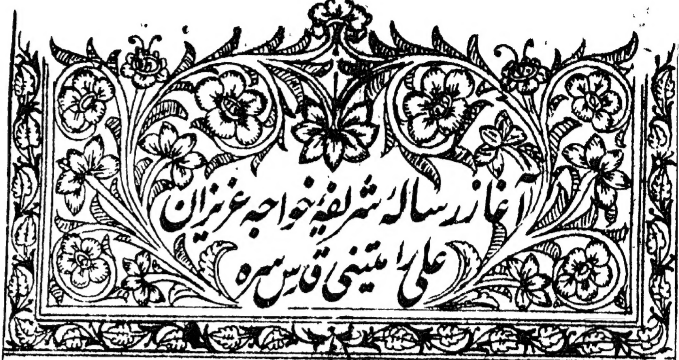 آغاز رسالۂ شریفۂ خواجہ عزیزان
علی رامیتنی قدس سرہ